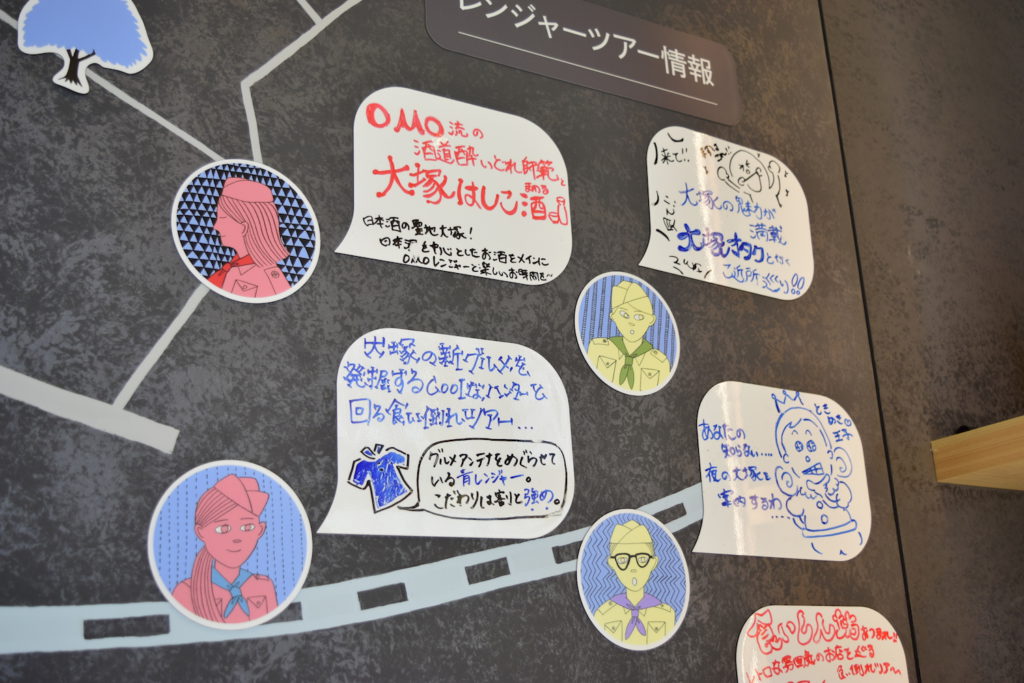 レンジャーツアー情報
OMO流の
酒道酔いどれ師範と
大塚はしご酒
日本酒の聖地大塚!
日本酒を中心としたお酒をメインに
OMOレンジャーと楽しいお時間を
来て!!
大塚の魅力が
満載
大塚オタクと行く
ご近所巡り!!
大塚の新グルメを
発掘するCOOlなハンターと
回る食い倒れツアー...
グルメアンテナをめぐらせて
いる青レンジャー。
こだわりは割と強め。
ときめきの
王子
あなたの
知らない....
夜の大塚を
案内するわ....
食いしん坊あつまれ!!
レトロな雰囲気のお店を巡る